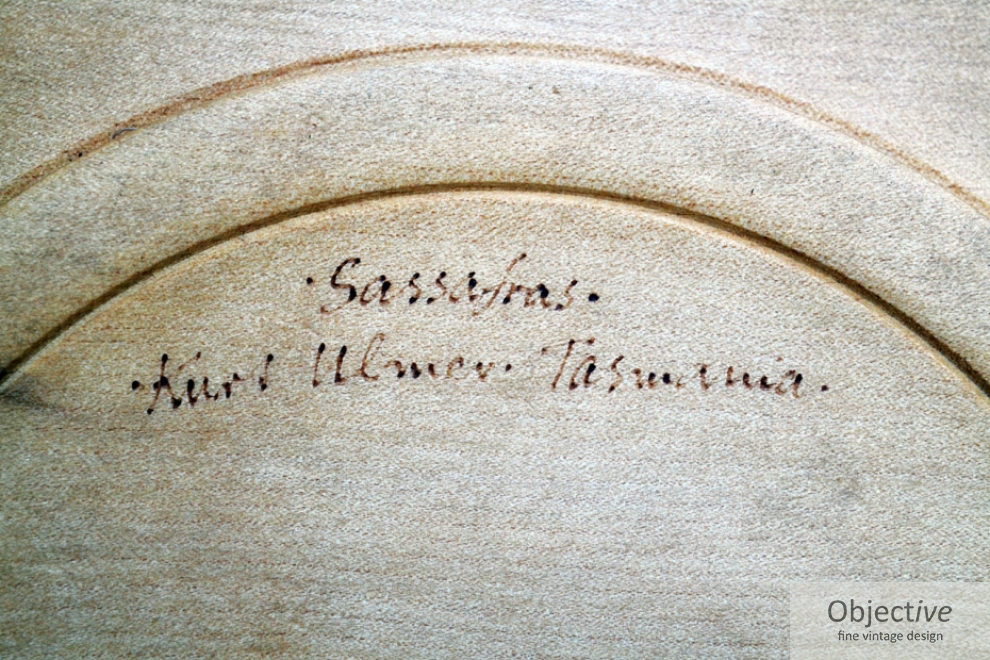 ·Sassafras·
·Kurt Ulmer· Tasmania·
Objective
fine vintage design